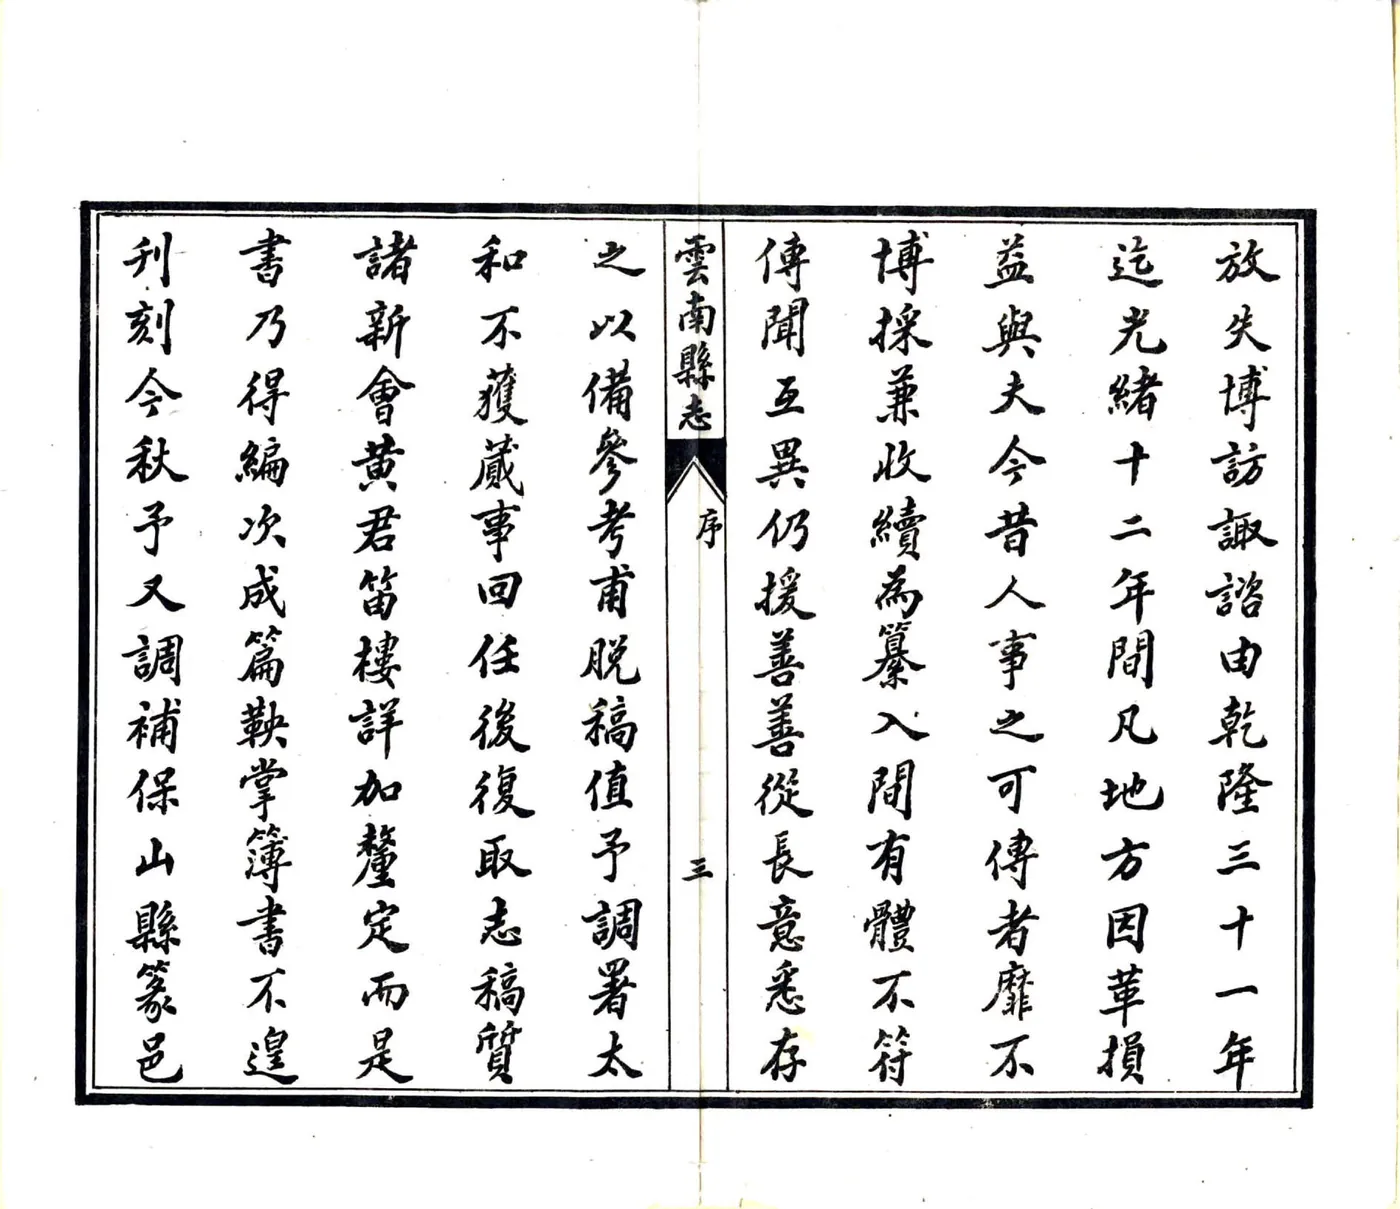 放失博訪諏諮由乾隆三十一年
迄光緒十二年間凡地方因革損
益與夫今昔人事之可傳者靡不
博採兼收續為纂入間有體不符
傳聞互異仍援善善從長意悉存
雲南縣志
序
三
之以備參考甫脫稿值予調署太
和不獲蕆事回任後復取志稿質
諸新會黄君笛樓詳加釐定而是
書乃得編次成篇鞅掌簿書不遑
刊刻今秋予又調補保山縣篆邑